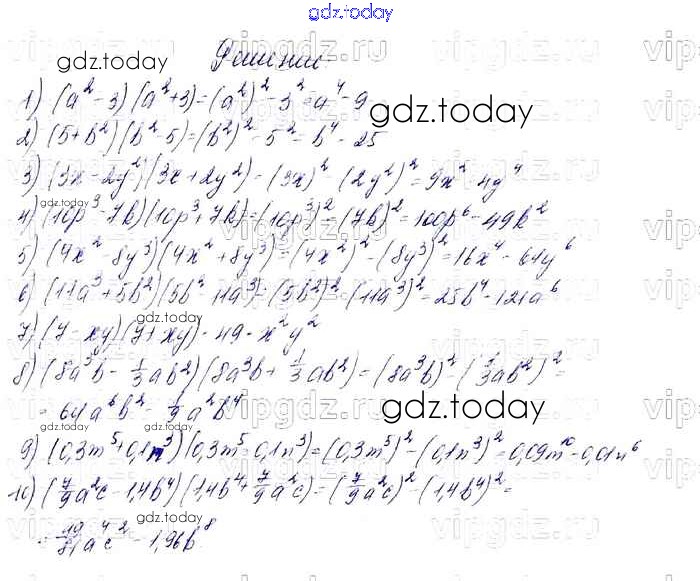 gdz.today
Решение
gdz.today
1) (a² - 3)(a² + 3) = (a²)² - 3² = a⁴ - 9
gdz.today
2) (5 + b²)(b² - 5) = (b²)² - 5² = b⁴ - 25
3) (3x - 2y²)(3x + 2y²) = (3x)² - (2y²)² = 9x² - 4y⁴
gdz.today
4) (10p³ - 7k)(10p³ + 7k) = (10p³)² - (7k)² = 100p⁶ - 49k²
gdz.today
5) (4x² - 8y³)(4x² + 8y³) = (4x²)² - (8y³)² = 16x⁴ - 64y⁶
6) (11a³ + 5b²)(5b² - 11a³) = (5b²)² - (11a³)² = 25b⁴ - 121a⁶
7) (7 - xy)(7 + xy) = 49 - x²y²
8) (8a³b - 1/3ab²)(8a³b + 1/3ab²) = (8a³b)² - (1/3ab²)² =
= 64a⁶b² - 1/9a²b⁴
gdz.today
gdz.today
9) (0,3m⁵ + 0,1n³)(0,3m⁵ - 0,1n³) = (0,3m⁵)² - (0,1n³)² = 0,09m¹⁰ - 0,01n⁶
gdz.today
10) (7/9a²c - 1,4b⁴)(1,4b⁴ + 7/9a²c) = (7/9a²c)² - (1,4b⁴)² =
gdz.today
= 49/81a⁴c² - 1,96b⁸
gdz.today
vipgdz.ru